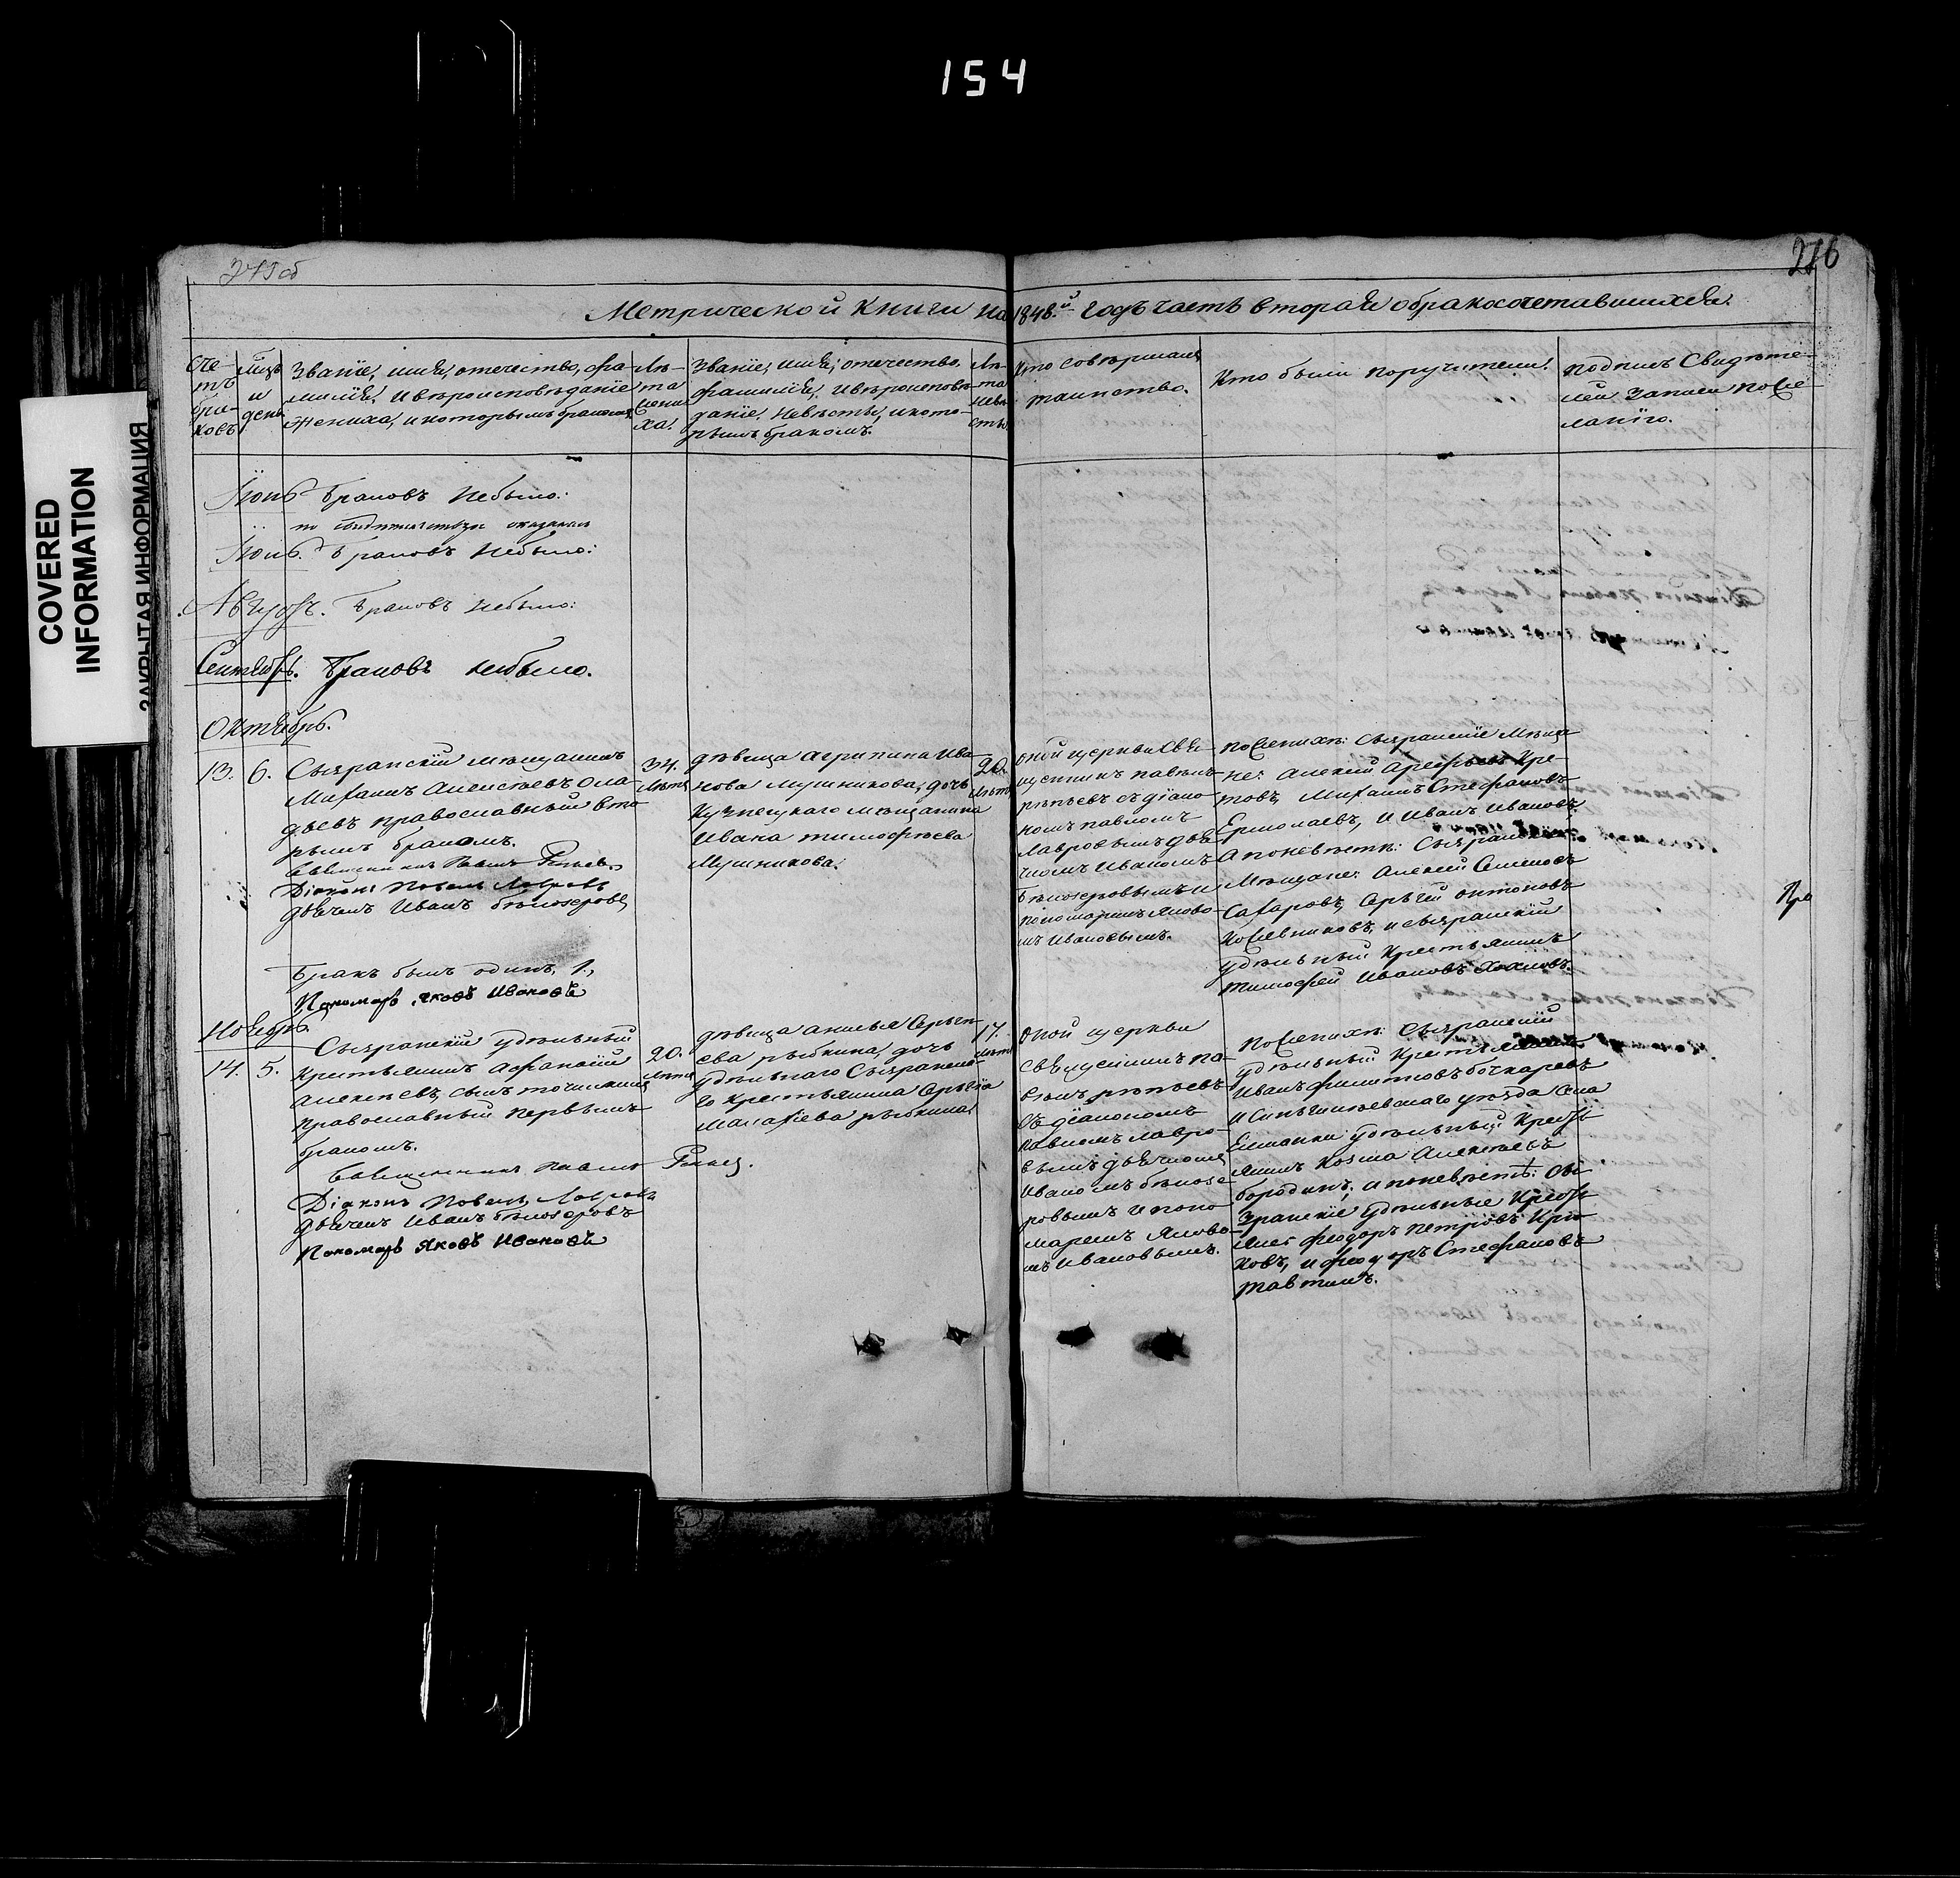 154
COVERED
INFORMATION
ЗАКРЫТАЯ ИНФОРМАЦИЯ
275 об
276
Метрической Книги на 1848.й годъ часть вторая о бракосочетавшихся.
Сче-
тъ
бра-
ковъ
Мцъ
и
день
Званіе, имя, отечество, фа-
милія, и вѣроисповѣданіе
жениха, и которымъ бракомъ
Лѣ-
та
жени
ха.
Званіе, имя, отечество.
фамилія, и вѣроисповѣ-
даніе, Невѣсты, и кото-
рымъ бракомъ.
Лѣ-
та
Невѣ
сты
Кто совершалъ
таинство.
Кто были поручители.
подпись Свидѣте-
лей записи по Же-
ланію.
Іюнь браковъ небыло.
по свидѣтельству оказалась
Іюль. браковъ небыло:
Августъ. браковъ небыло:
Сентябрь. браковъ небыло.
Октябрь.
13. 6.
Сызранскій мѣщанинъ
Михаилъ Алексѣевъ Ола-
дьевъ православный вто
рымъ бракомъ.
Священникъ Павелъ
Діаконъ Павелъ Лавровъ
дьячекъ Иванъ бѣлозеровъ
34.
лѣтъ
дѣвица Агрипина Ива
нова Мушникова, дочь
Кузнецкаго мѣщанина
Ивана тимофѣева
Мушникова.
20.
лѣтъ
оной церкви Свя-
щенникъ павелъ
рѣпьевъ съ діако
номъ павломъ
Лавровымъ дья
чкомъ Иваномъ
бѣлозеровымъ и
пономаремъ Яково-
мъ Ивановымъ.
по Женихѣ: Сызранскіе Мѣща
не: Алексѣй Арефьевъ Кре-
товъ, Михаилъ Стефановъ
Ермолаевъ, и Иванъ Ивановъ,
А по невѣстѣ: Сызранскіе
Мѣщане: Алексѣй Семеновъ
Сахаровъ, Сергѣй Антоновъ
Кожевниковъ, и сызранскій
удѣльный Крестьянинъ
тимофей Ивановъ
Бракъ былъ одинъ, 1.,
Пономарь Яковъ Ивановъ
Ноябрь.
14. 5.
Сызранскій удѣльный
Крестьянинъ Афанасій
Алексѣевъ, сынъ точилкинъ
православный первымъ
бракомъ.
Священникъ Павелъ
Діаконъ Павелъ Лавровъ
дьячекъ Иванъ бѣлозеровъ
Пономарь Яковъ Ивановъ
20.
лѣтъ
дѣвица Анисья Сергѣ-
ева рыбкина, дочь
удѣльнаго Сызранска-
го крестьянина Сергѣя
Макарѣева рыбкина
17.
лѣтъ
оной церкви
священникъ па-
велъ рѣпьевъ
съ діакономъ
павломъ лавро-
вымъ дьячкомъ
Иваномъ бѣлозе
ровымъ и поно
маремъ Яково-
мъ Ивановымъ.
по Женихѣ: Сызранскій
удѣльный Крестьянинъ
Иванъ филиповъ бочкаревъ
и Сингилѣевскаго уѣзда Села
Елшанки удѣльный Кресть
янинъ Козма Алексѣевъ
бородинъ, и по невѣстѣ: Сы-
зранскіе удѣльные Кресть
яне: феодоръ Петровъ Крю-
ковъ, и феодоръ Стефановъ
тавтинъ.
Пра